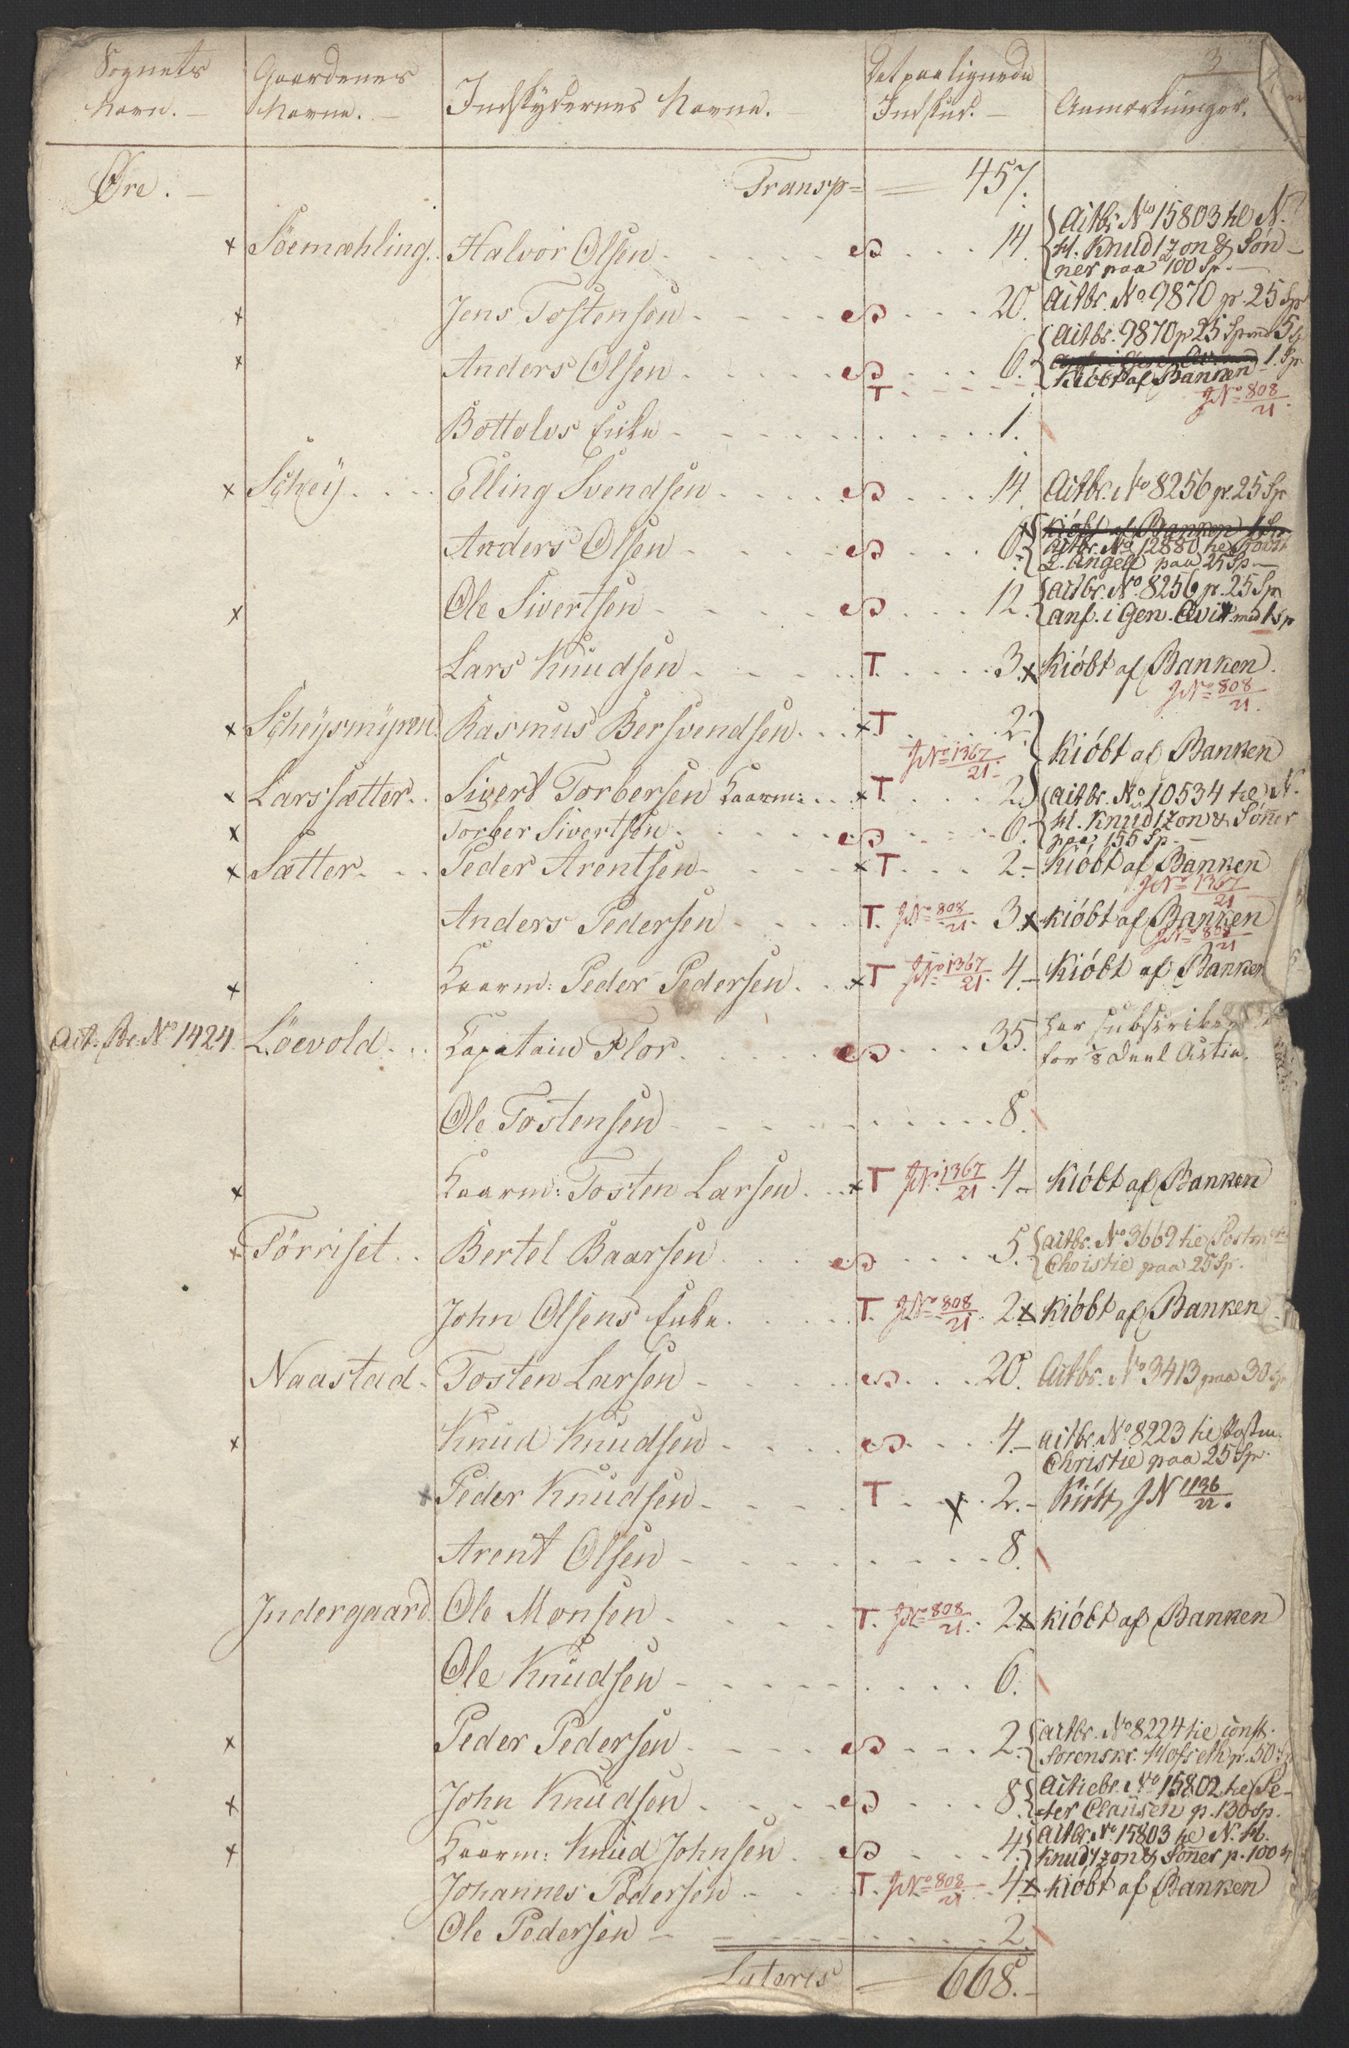 3
Sognets Navn. Gaardenes Navne. Indskydernes Navne. Det paalignede Indskud. Anmærkninger.
Øre. Transp 457.
x Söemæhling. Halvor Olsen S 14. Actbr. No 15803 til N.
H. Knudtzon & Søn-
ner paa 100 Sp.
x Jens Tostensen S 20. Actbr. No 9870 p. 25 Sp
x Anders Olsen S 6. Actbr. 9870 p 25 Sp 5 Sp
T Kiöbt af Banken 1 Sp
JNo 808/21.
Bottolvs Enke 1.
x Schey Elling Svendsen S 14. Actbr. No 8256 p. 25 Sp
Anders Olsen S 6. Kiöbt af Banken
Actbr. No 12880
L. Angell paa 25 Sp
x Ole Sivertsen S 12. actbr. No 8256 p. 25 Sp
anf. i Gen. Qvit. med 1 Sp
Lars Knudsen T 3. x Kiöbt af Banken.
JNo 808/21.
x Scheysmyren Rasmus Bersvendsen x T 2. Kiöbt af Banken
JNo 1367/21.
x Larssætter Sivert Torbersen Kaarm: x T 2. actbr. No 10534 til N.
x Torber Sivertsen S 6. H. Knudtzon & Söner
paa 155 Sp.
x Sætter Peder Arentsen x T 2. Kiöbt af Banken
JNo 1367/21
Anders Pedersen T. JNo 808/21. 3. x Kiöbt af Banken
JNo 808/21
x Kaarm: Peder Pedersen x T JNo 1367/21. 4. Kiöbt af Banken
Act. Br. No 1424 Löevold Capitain Flor S 35. har subscriberet
for 1/8 Deel Actie.
Ole Tostensen 8.
x Kaarm: Tosten Larsen x T JNo 1367/21. 4. Kiöbt af Banken
x Törriset Bertel Baarsen S 5. actbr. No 3662 til Postm
Christie paa 25 Sp.
John Olsens Enke T. JNo 808/21. 2. x Kiöbt af Banken
Naastad Tosten Larsen S 20. Actbr. No 3413 paa 30 Sp
x Knud Knudsen S 4. actbr. No 8223 til Postm.
Christie paa 25 Sp.
x Peder Knudsen T x 2. Kiöbt JN 1136/22.
Arent Olsen 8.
Indergaard Ole Monsen T. JNo 808/21. 2. x Kiöbt af Banken
Ole Knudsen 6.
x Peder Pedersen S 2. actbr. No 8224 til const.
Sorenskr. Hofseth p. 50 Sp
x John Knudsen S 8. Actiebr. No 15802 til Pe-
ter Clausen p. 130 Sp.
x Kaarm: Knud Johnsen S 4. actbr. No 15803 til N. H.
Knudtzon & Söner p. 100 Sp
Johannes Pedersen T. JNo 808/21. 4. x Kiöbt af Banken
Ole Pedersen 2.
Lateris 668.